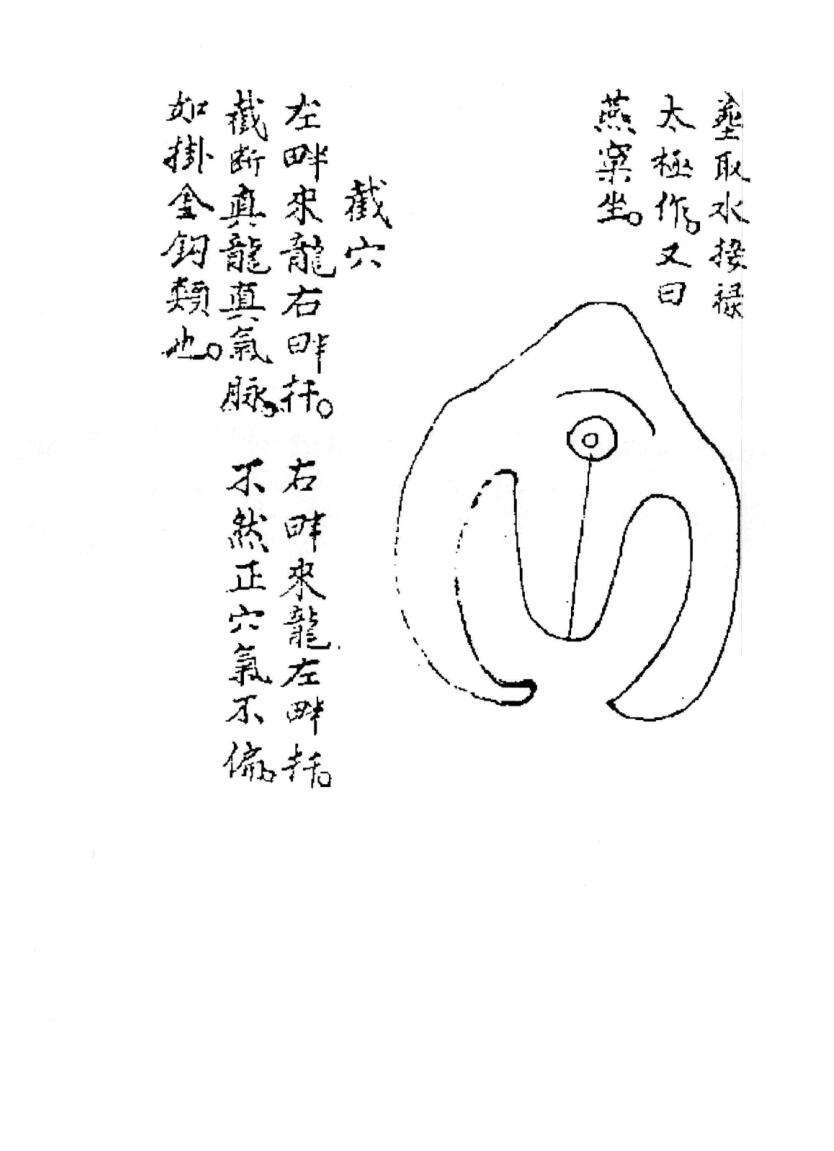 取水接禄
太極作。又曰
燕窠坐。
截穴
左畔來龍右畔扦。 右畔來龍左畔扦。
截断真龍真氣脉。 不然正穴氣不偏。
如掛金鈎類也。